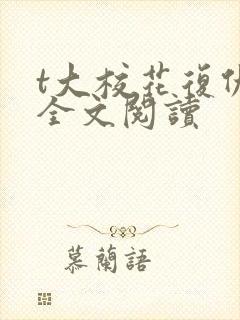 t大校花復仇
全文閱讀
慕蘭語